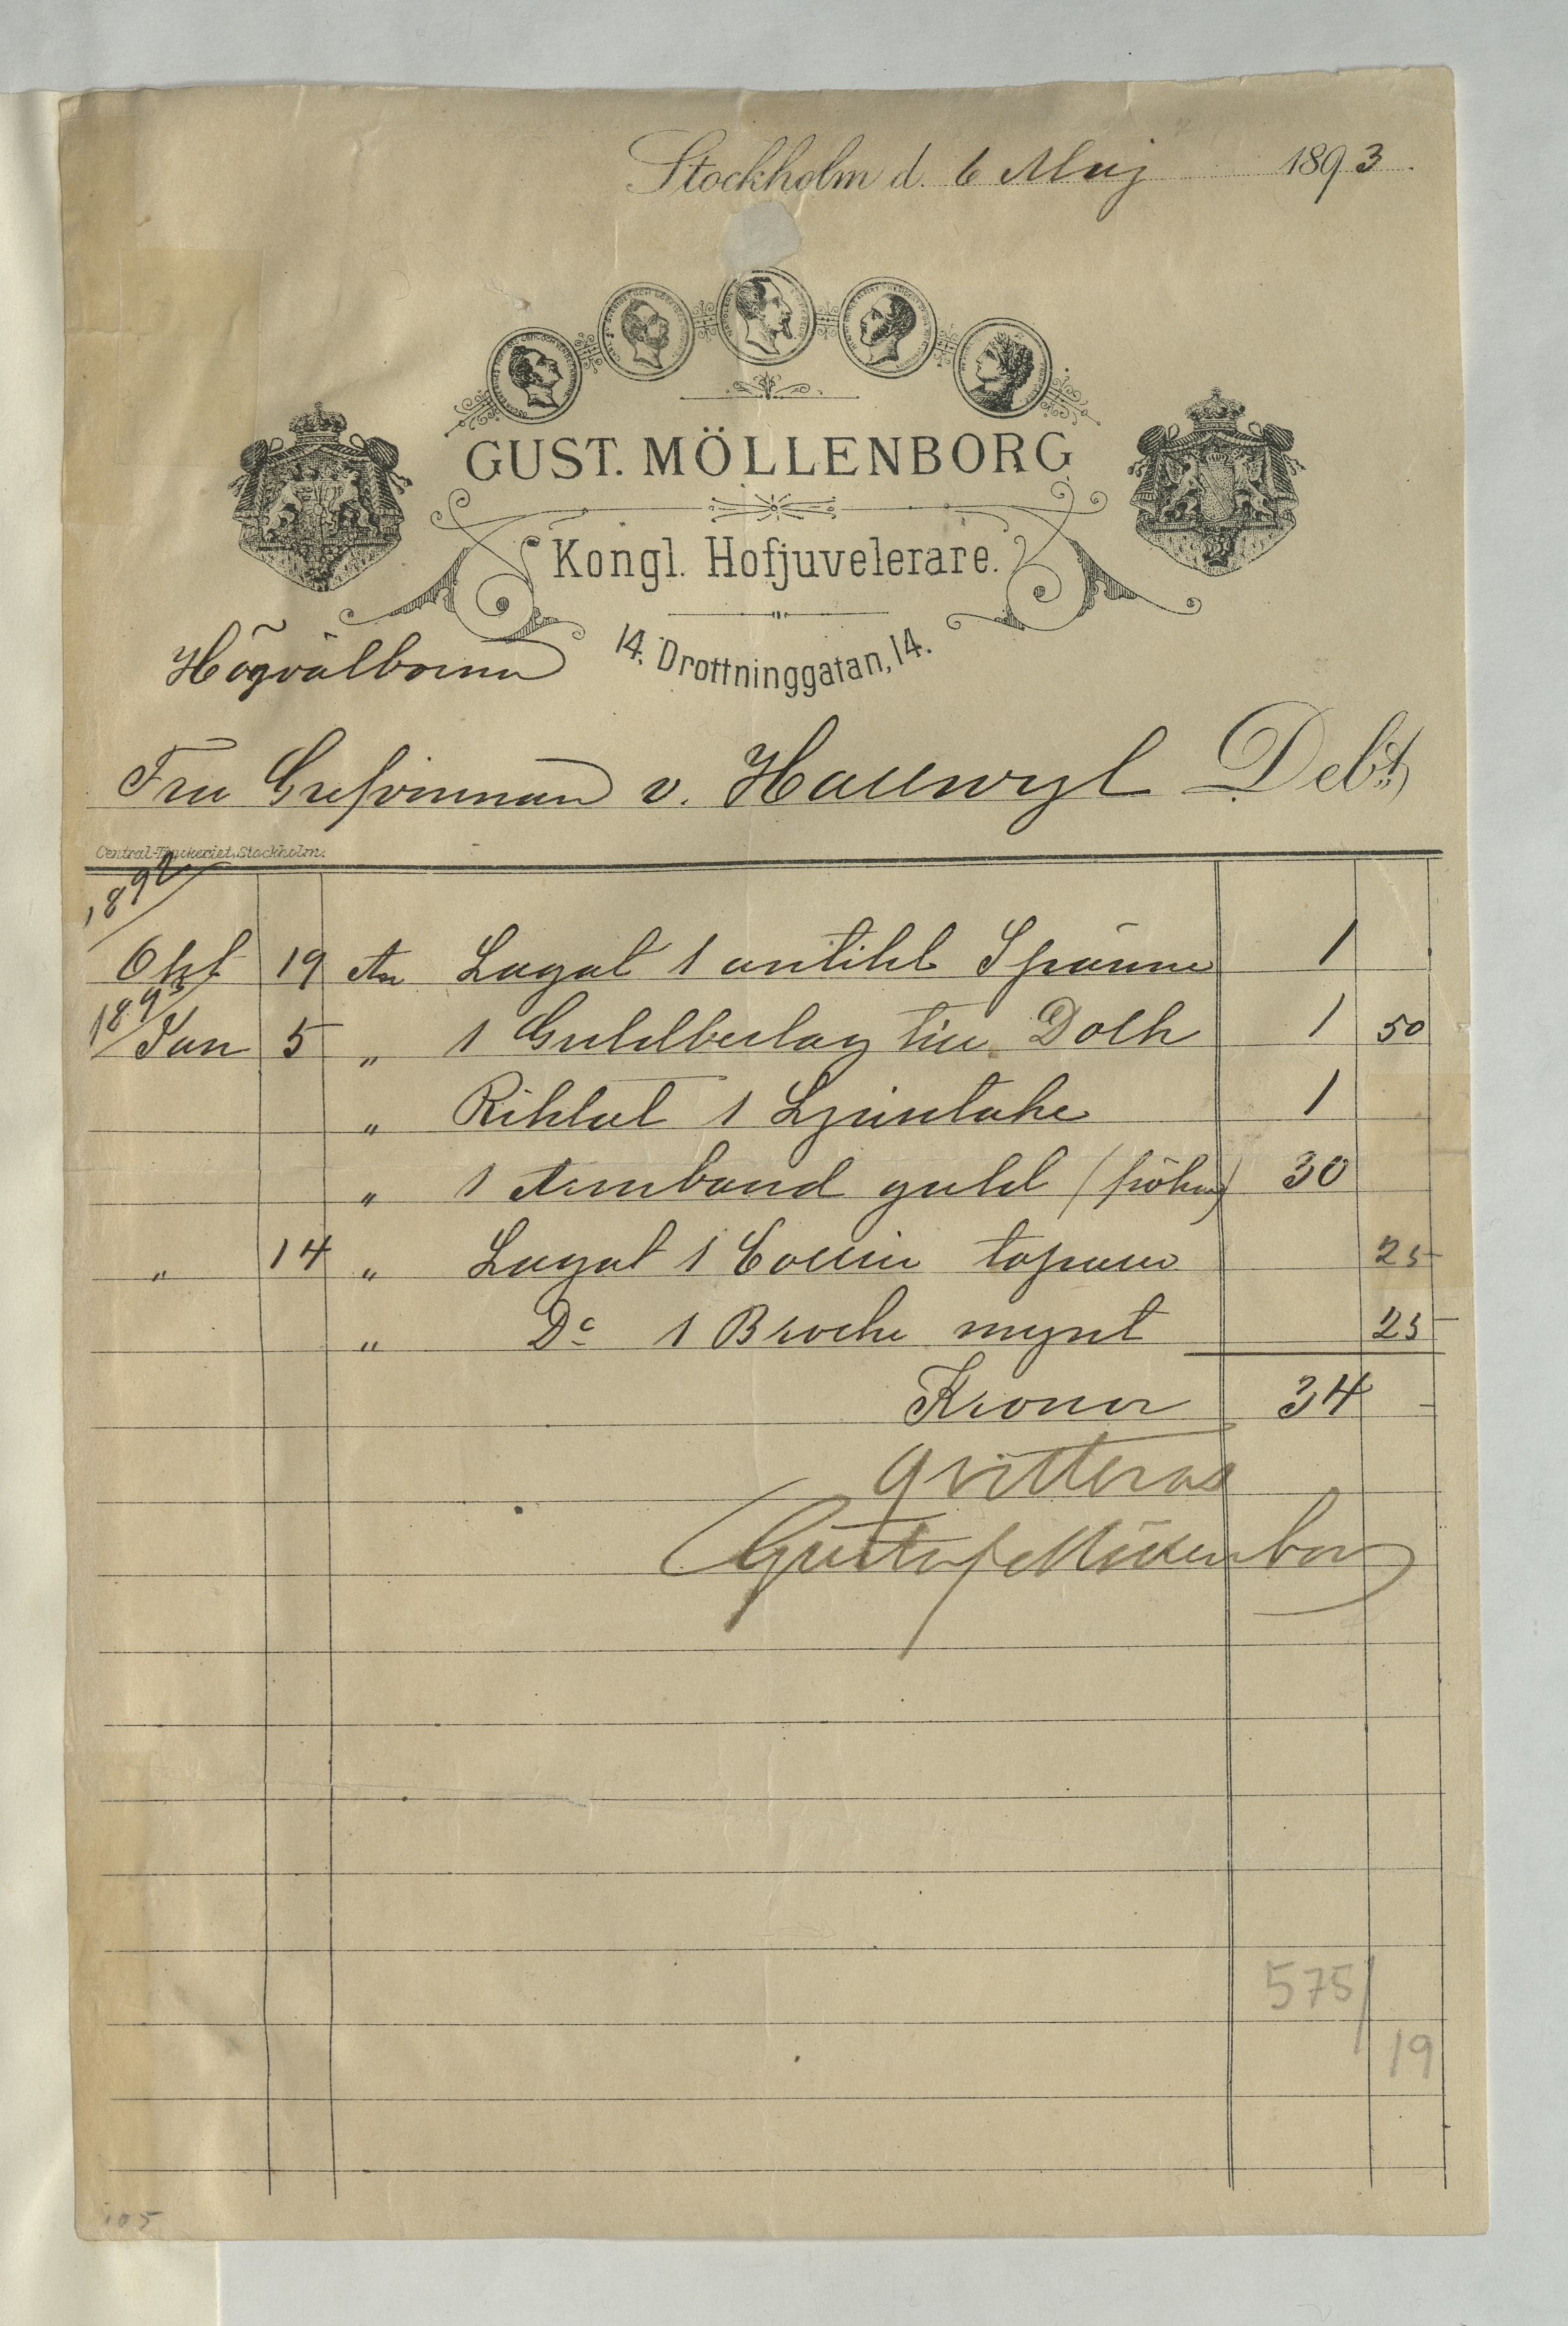 Stockholm d. 6 Maj 1893.
GUST. MÖLLENBORG
Kongl. Hofjuvelerare.
14. Drottninggatan, 14.
Högvälborna
Fru Grefvinnan v. Hallwyl Debt.
Central-Tryckeriet, Stockholm.
1892
Okt 19 An Lagat 1 antikt Spänne 1
1893
Jan 5 „ 1 Guldbeslag till Dolk 1 50
„ Riktat 1 Ljusstake 1
„ 1 Armband guld 30
„ 14 „ Lagat 1 Collier 25
„ Do 1 Broche mynt 25
Kronor 34 -
Qvitteras
Gustaf Möllenborg
575/
19
105